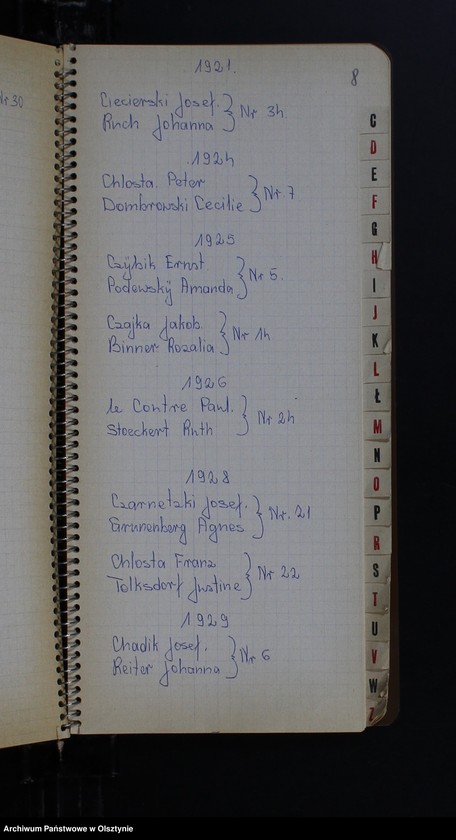 Nr 30
8
1921.
Ciecierski Josef. } Nr 34.
Ruch Johanna
1924
Chlosta. Peter } Nr 7
Dombrowski Cecilie
1925
Czÿbik Ernst } Nr 5.
Podewskÿ Amanda
Czajka Jakob. } Nr 14
Binner Rozalia
1926
le Contre Paul. } Nr 24
Stoeckert Ruth
1928
Czarnetzki Josef. } Nr. 21
Grunenberg Agnes
Chlosta Franz } Nr 22
Tolksdorf Justine
1929
Chadik Josef. } Nr 6
Reiter Johanna
C
D
E
F
G
H
I
J
K
L
Ł
M
N
O
P
R
S
T
U
V
W
Z
Archiwum Państwowe w Olsztynie